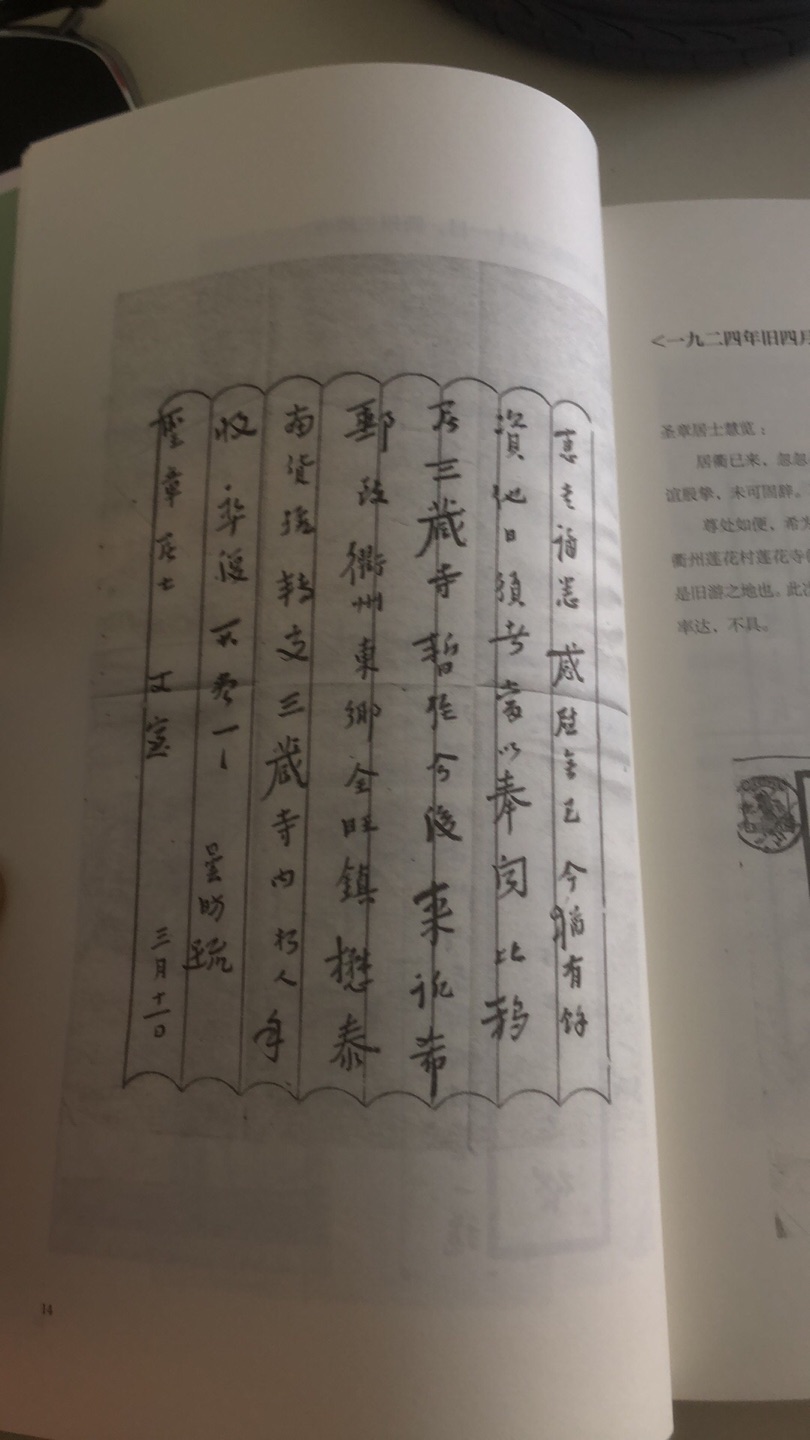 惠書誦悉感慰無已今猶有餘
資他日須者當以奉聞比移
居三藏寺暫住今後來訊希
郵政衢州東鄉全旺鎮懋泰
南貨號轉交三藏寺內朽人手
收率復不具一一
曇昉疏
聖章居士 丈室
三月十一日
14
<一九二四年旧四月
圣章居士慧览：
居衢已来，忽忽
谊殷挚，未可固辞。
尊处如便，希为
衢州莲花村莲花寺
是旧游之地也。此次
率达，不具。